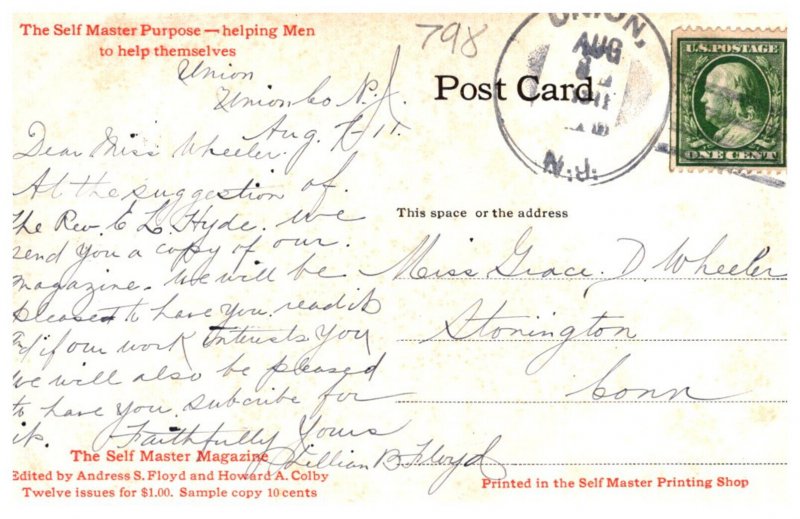 The Self Master Purpose — helping Men
to help themselves
798
Post Card
UNION,
AUG
N.J.
U.S. POSTAGE
ONE CENT
Union
Union Co N.J.
Aug. 7-11.
Dear Miss Wheeler.
At the suggestion of.
the Rev. E L. Hyde. we
send you a copy of our.
magazine. We will be
pleased to have you read it
if our work interests you
we will also be pleased
to have you subcribe for
it. Faithfully Yours
Lillian B. Floyd
This space or the address
Miss. Grace. D. Wheeler
Stonington
Conn
The Self Master Magazine
Edited by Andress S. Floyd and Howard A. Colby
Twelve issues for $1.00. Sample copy 10 cents
Printed in the Self Master Printing Shop